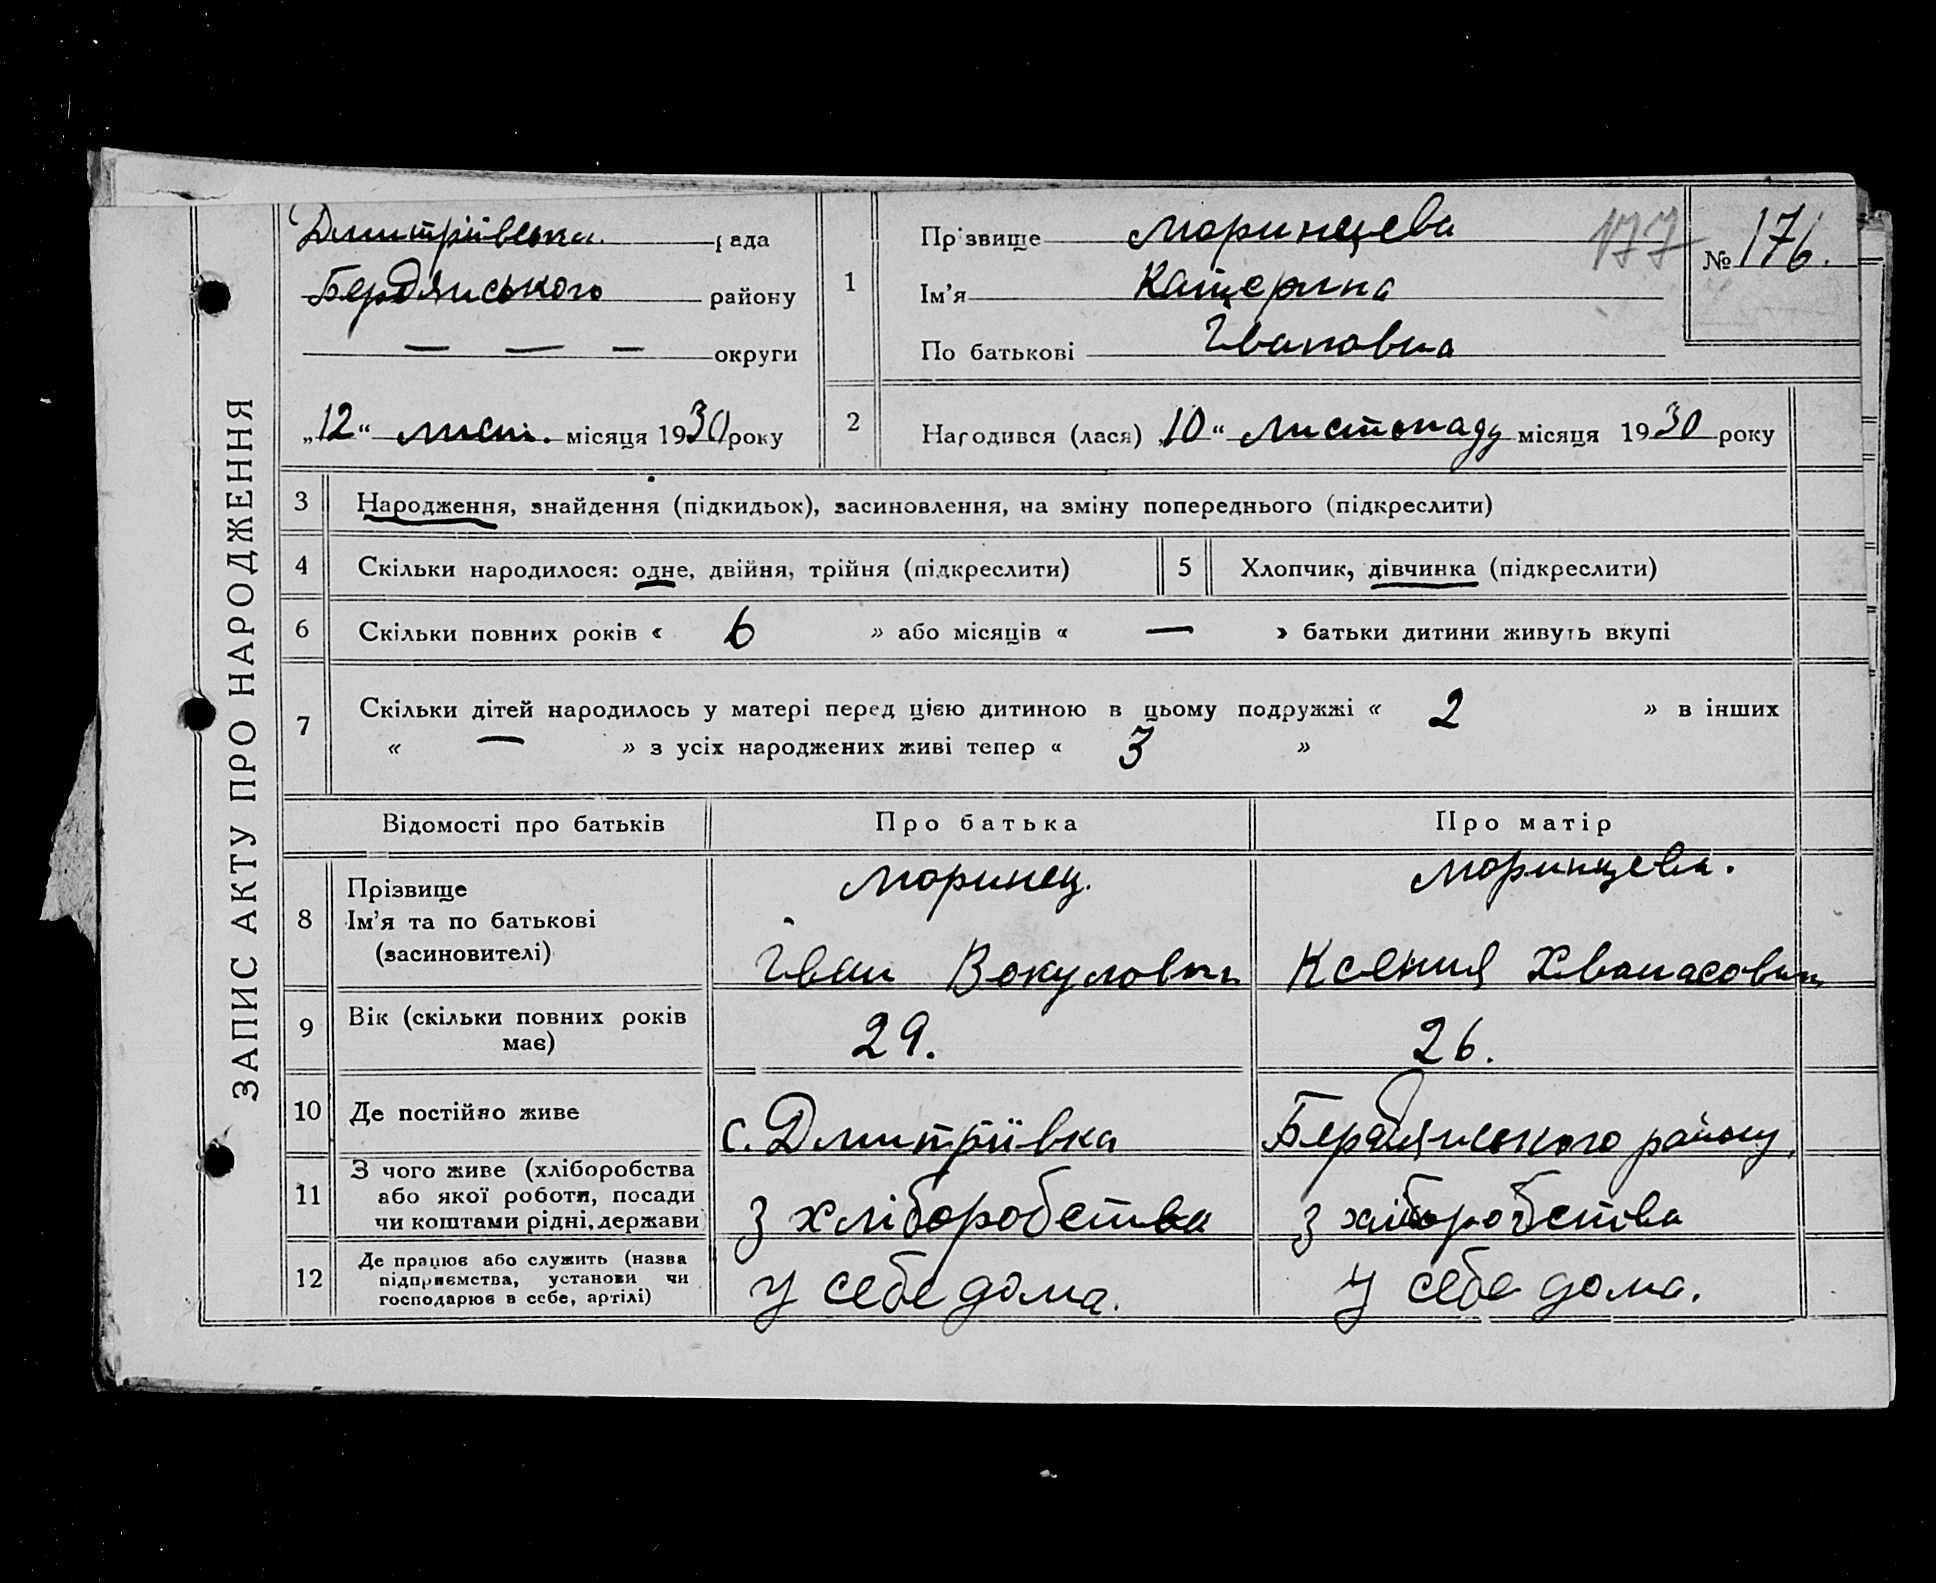 ЗАПИС АКТУ ПРО НАРОДЖЕННЯ
Дмитріівська рада
Бердянського району
— — — округи
„12“ лист. місяця 1930 року
1
Прізвище Моринцева
Ім'я Катерина
По батькові Івановна
177
№ 176.
2
Народився (лася) „10“ Листопаду місяця 1930 року
3 Народження, знайдення (підкидьок), засиновлення, на зміну попереднього (підкреслити)
4 Скільки народилося: одне, двійня, трійня (підкреслити)
5 Хлопчик, дівчинка (підкреслити)
6 Скільки повних років « 6 » або місяців « — » батьки дитини живуть вкупі
7 Скільки дітей народилось у матері перед цією дитиною в цьому подружжі « 2 » в інших
« — » з усіх народжених живі тепер « 3 »
Відомості про батьків Про батька Про матір
8 Прізвище
Ім'я та по батькові
(засиновителі)
Моринец.
Іван Вокулович
Моринцева.
Ксения Хванасовна
9 Вік (скільки повних років
має)
29. 26.
10 Де постійно живе
с. Дмитріівка Бердянського району,
11 З чого живе (хліборобства
або якої роботи, посади
чи коштами рідні, держави
з хліборобства з хліборобства
12 Де працює або служить (назва
підприємства, установи чи
господарює в себе, артілі)
у себе дома. у себе дома.